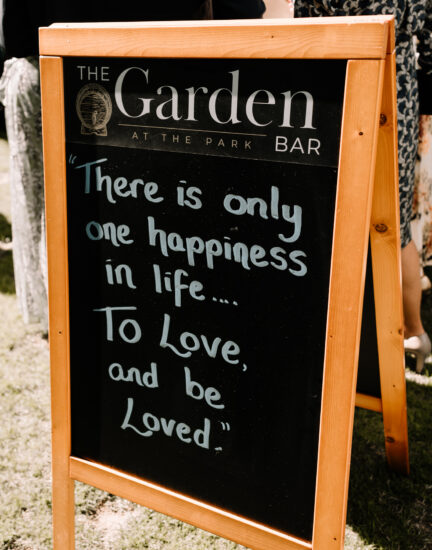 THE Garden
AT THE PARK BAR
"There is only
one happiness
in life....
To Love,
and be
Loved."